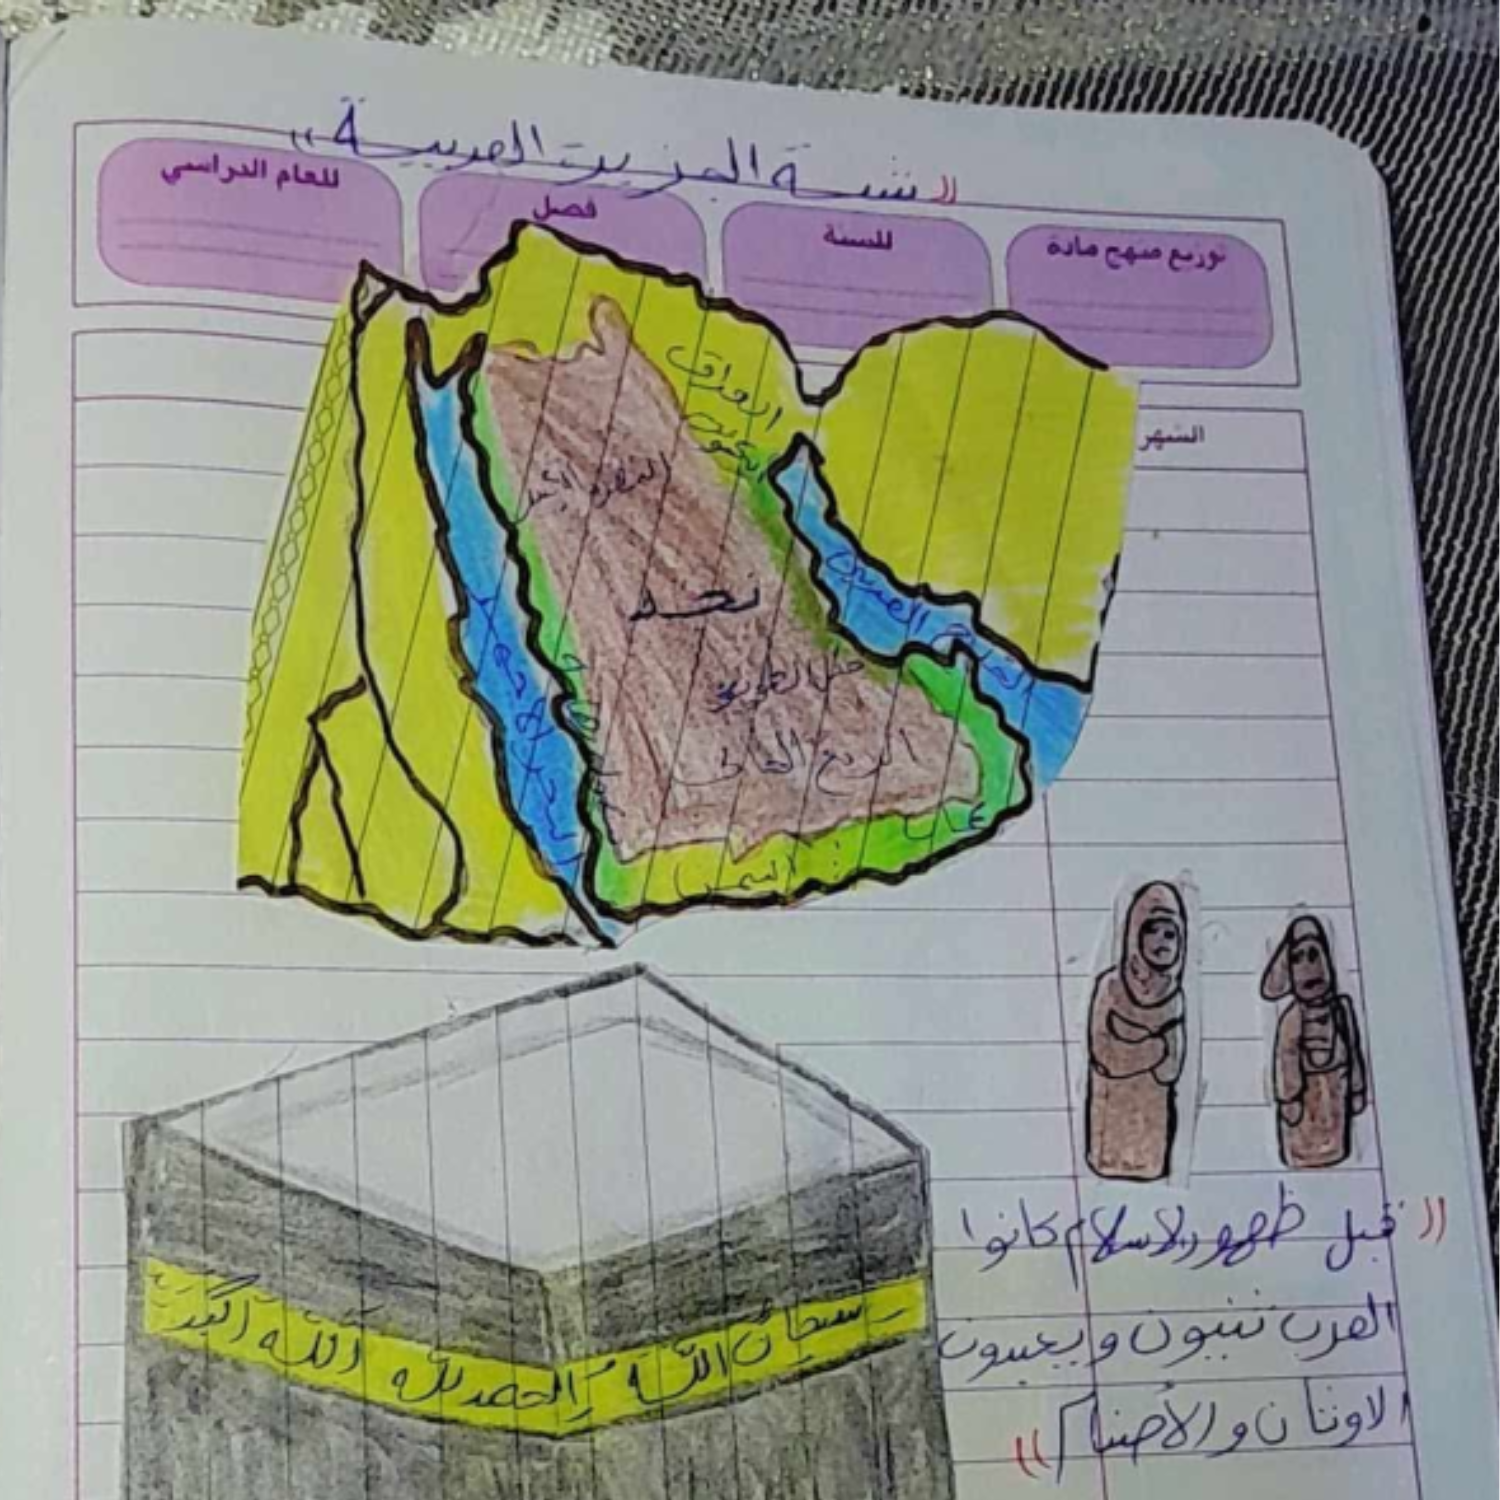 " شبه الجزيرة العربية "
توزيع منهج مادة
للسنة
فصل
للعام الدراسي
الشهر
العراق
الكويت
نجد
جبل الطويق
الربع الخالي
الخليج العربي
البحر الاحمر
عمان
اليمن
(( قبل ظهور الاسلام كانوا
العرب ينبون ويعبدون
الاوثان والأصنام ))
سبحان الله والحمد لله الله اكبر